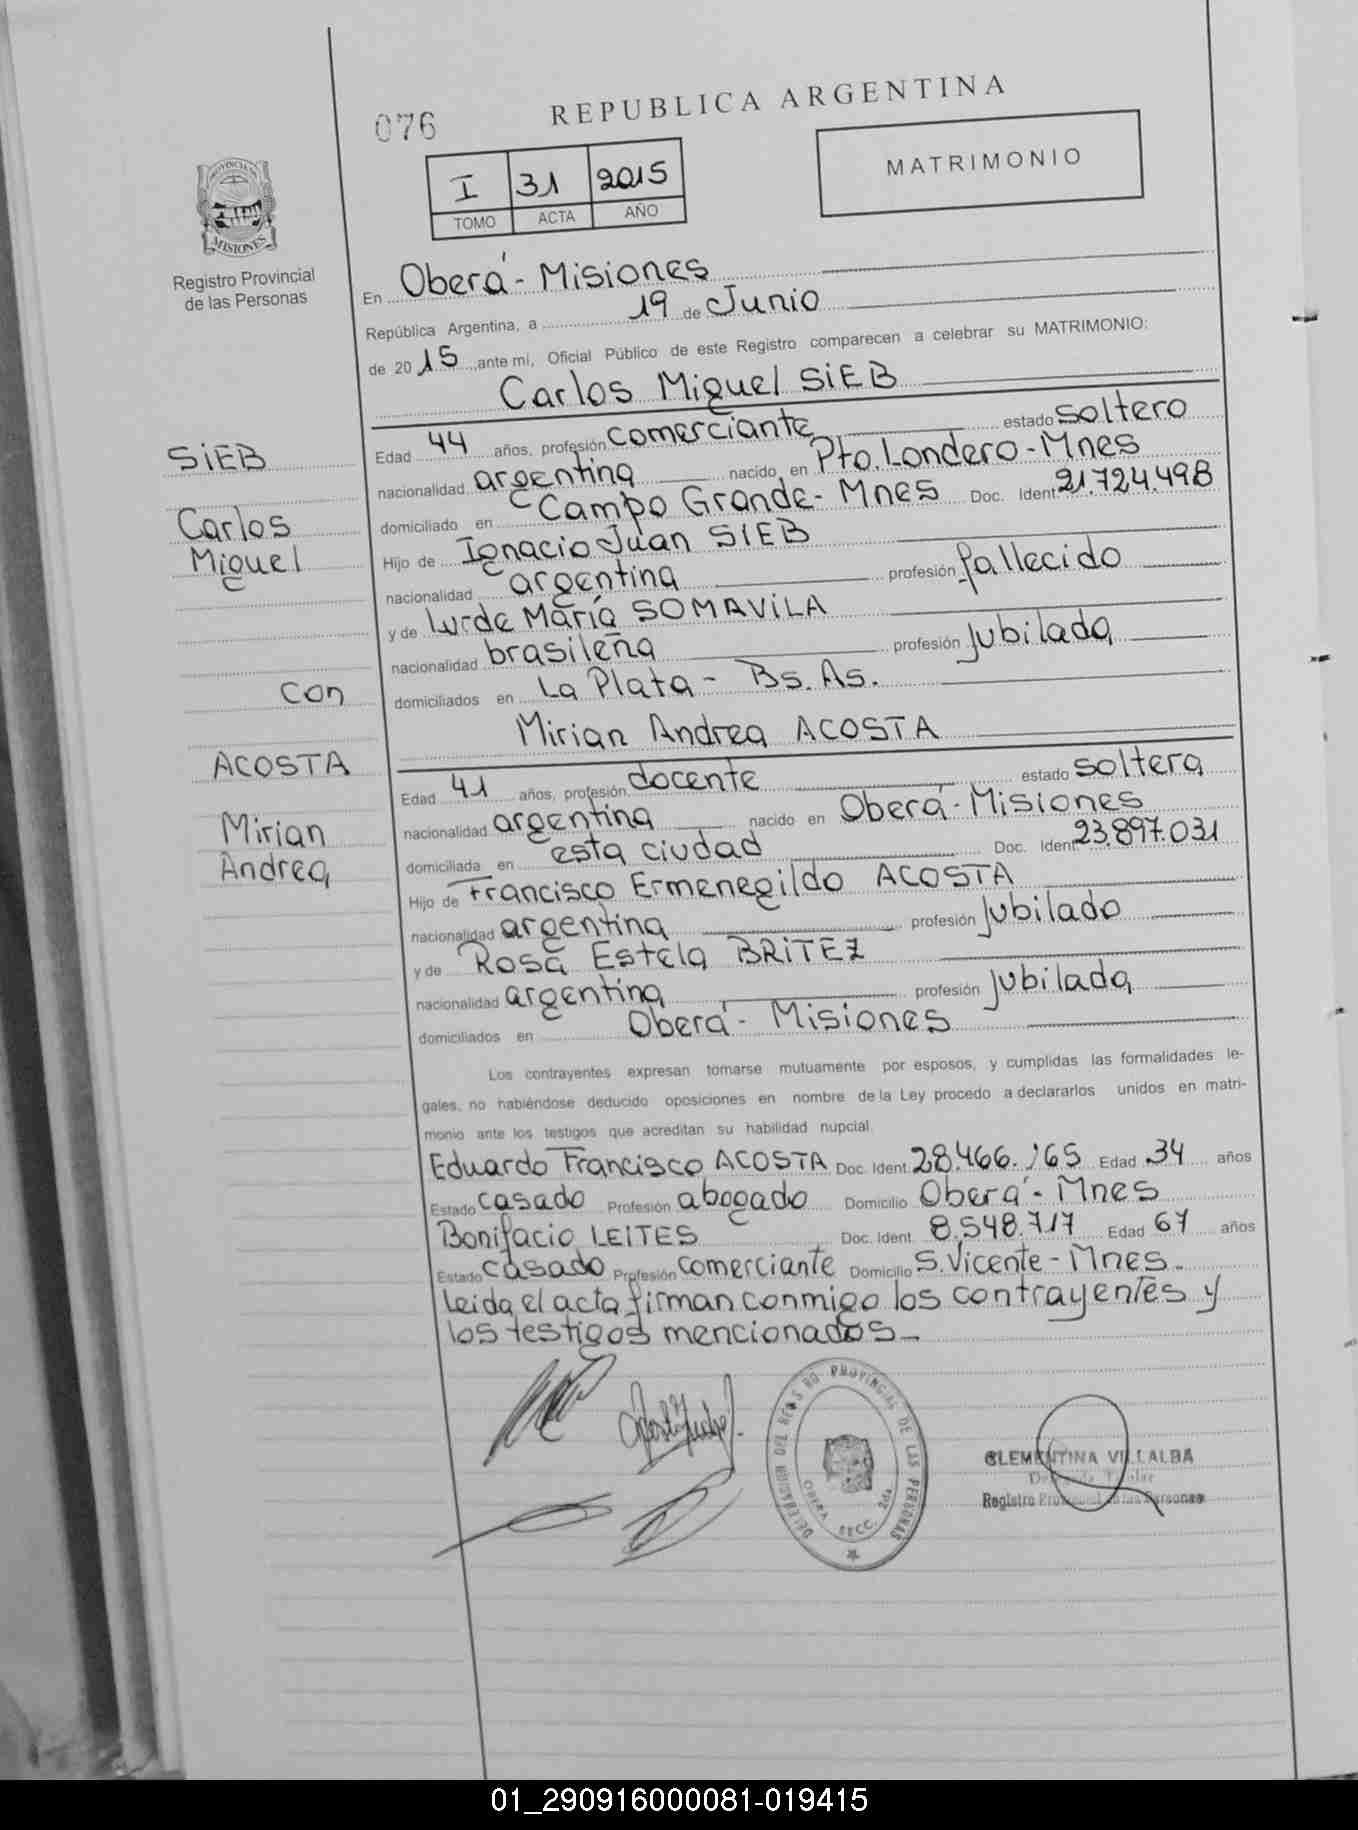 076
REPUBLICA ARGENTINA
I 31 2015
TOMO ACTA AÑO
MATRIMONIO
PROVINCIA
MISIONES
Registro Provincial
de las Personas
En Oberá - Misiones
República Argentina, a 19 de Junio
de 2015, ante mi, Oficial Público de este Registro comparecen a celebrar su MATRIMONIO:
Carlos Miguel SIEB
Edad 44 años, profesión comerciante estado soltero
nacionalidad argentina nacido en Pto. Londero - Mnes
domiciliado en Campo Grande - Mnes Doc. Ident. 21.724.498
Hijo de Ignacio Juan SIEB
nacionalidad argentina profesión fallecido
y de Lurde María SOMAVILA
nacionalidad brasileña profesión jubilada
domiciliados en La Plata - Bs. As.
Mirian Andrea ACOSTA
Edad 41 años, profesión docente estado soltera
nacionalidad argentina nacido en Oberá - Misiones
domiciliada en esta ciudad Doc. Ident 23.897.031
Hijo de Francisco Ermenegildo ACOSTA
nacionalidad argentina profesión jubilado
y de Rosa Estela BRITEZ
nacionalidad argentina profesión jubilada
domiciliados en Oberá - Misiones
SIEB
Carlos
Miguel
con
ACOSTA
Mirian
Andrea
Los contrayentes expresan tomarse mutuamente por esposos, y cumplidas las formalidades le-
gales, no habiéndose deducido oposiciones en nombre de la Ley procedo a declararlos unidos en matri-
monio ante los testigos que acreditan su habilidad nupcial.
Eduardo Francisco ACOSTA Doc. Ident. 28.466.165 Edad 34 años
Estado casado Profesión abogado Domicilio Oberá - Mnes
Bonifacio LEITES Doc. Ident. 8.548.717 Edad 67 años
Estado casado Profesión comerciante Domicilio S. Vicente - Mnes.
Leida el acta firman conmigo los contrayentes y
los testigos mencionados -
PROVINCIAL DE LAS PERSONAS
OBERA SECC. 2da
CLEMENTINA VILLALBA
01_290916000081-019415